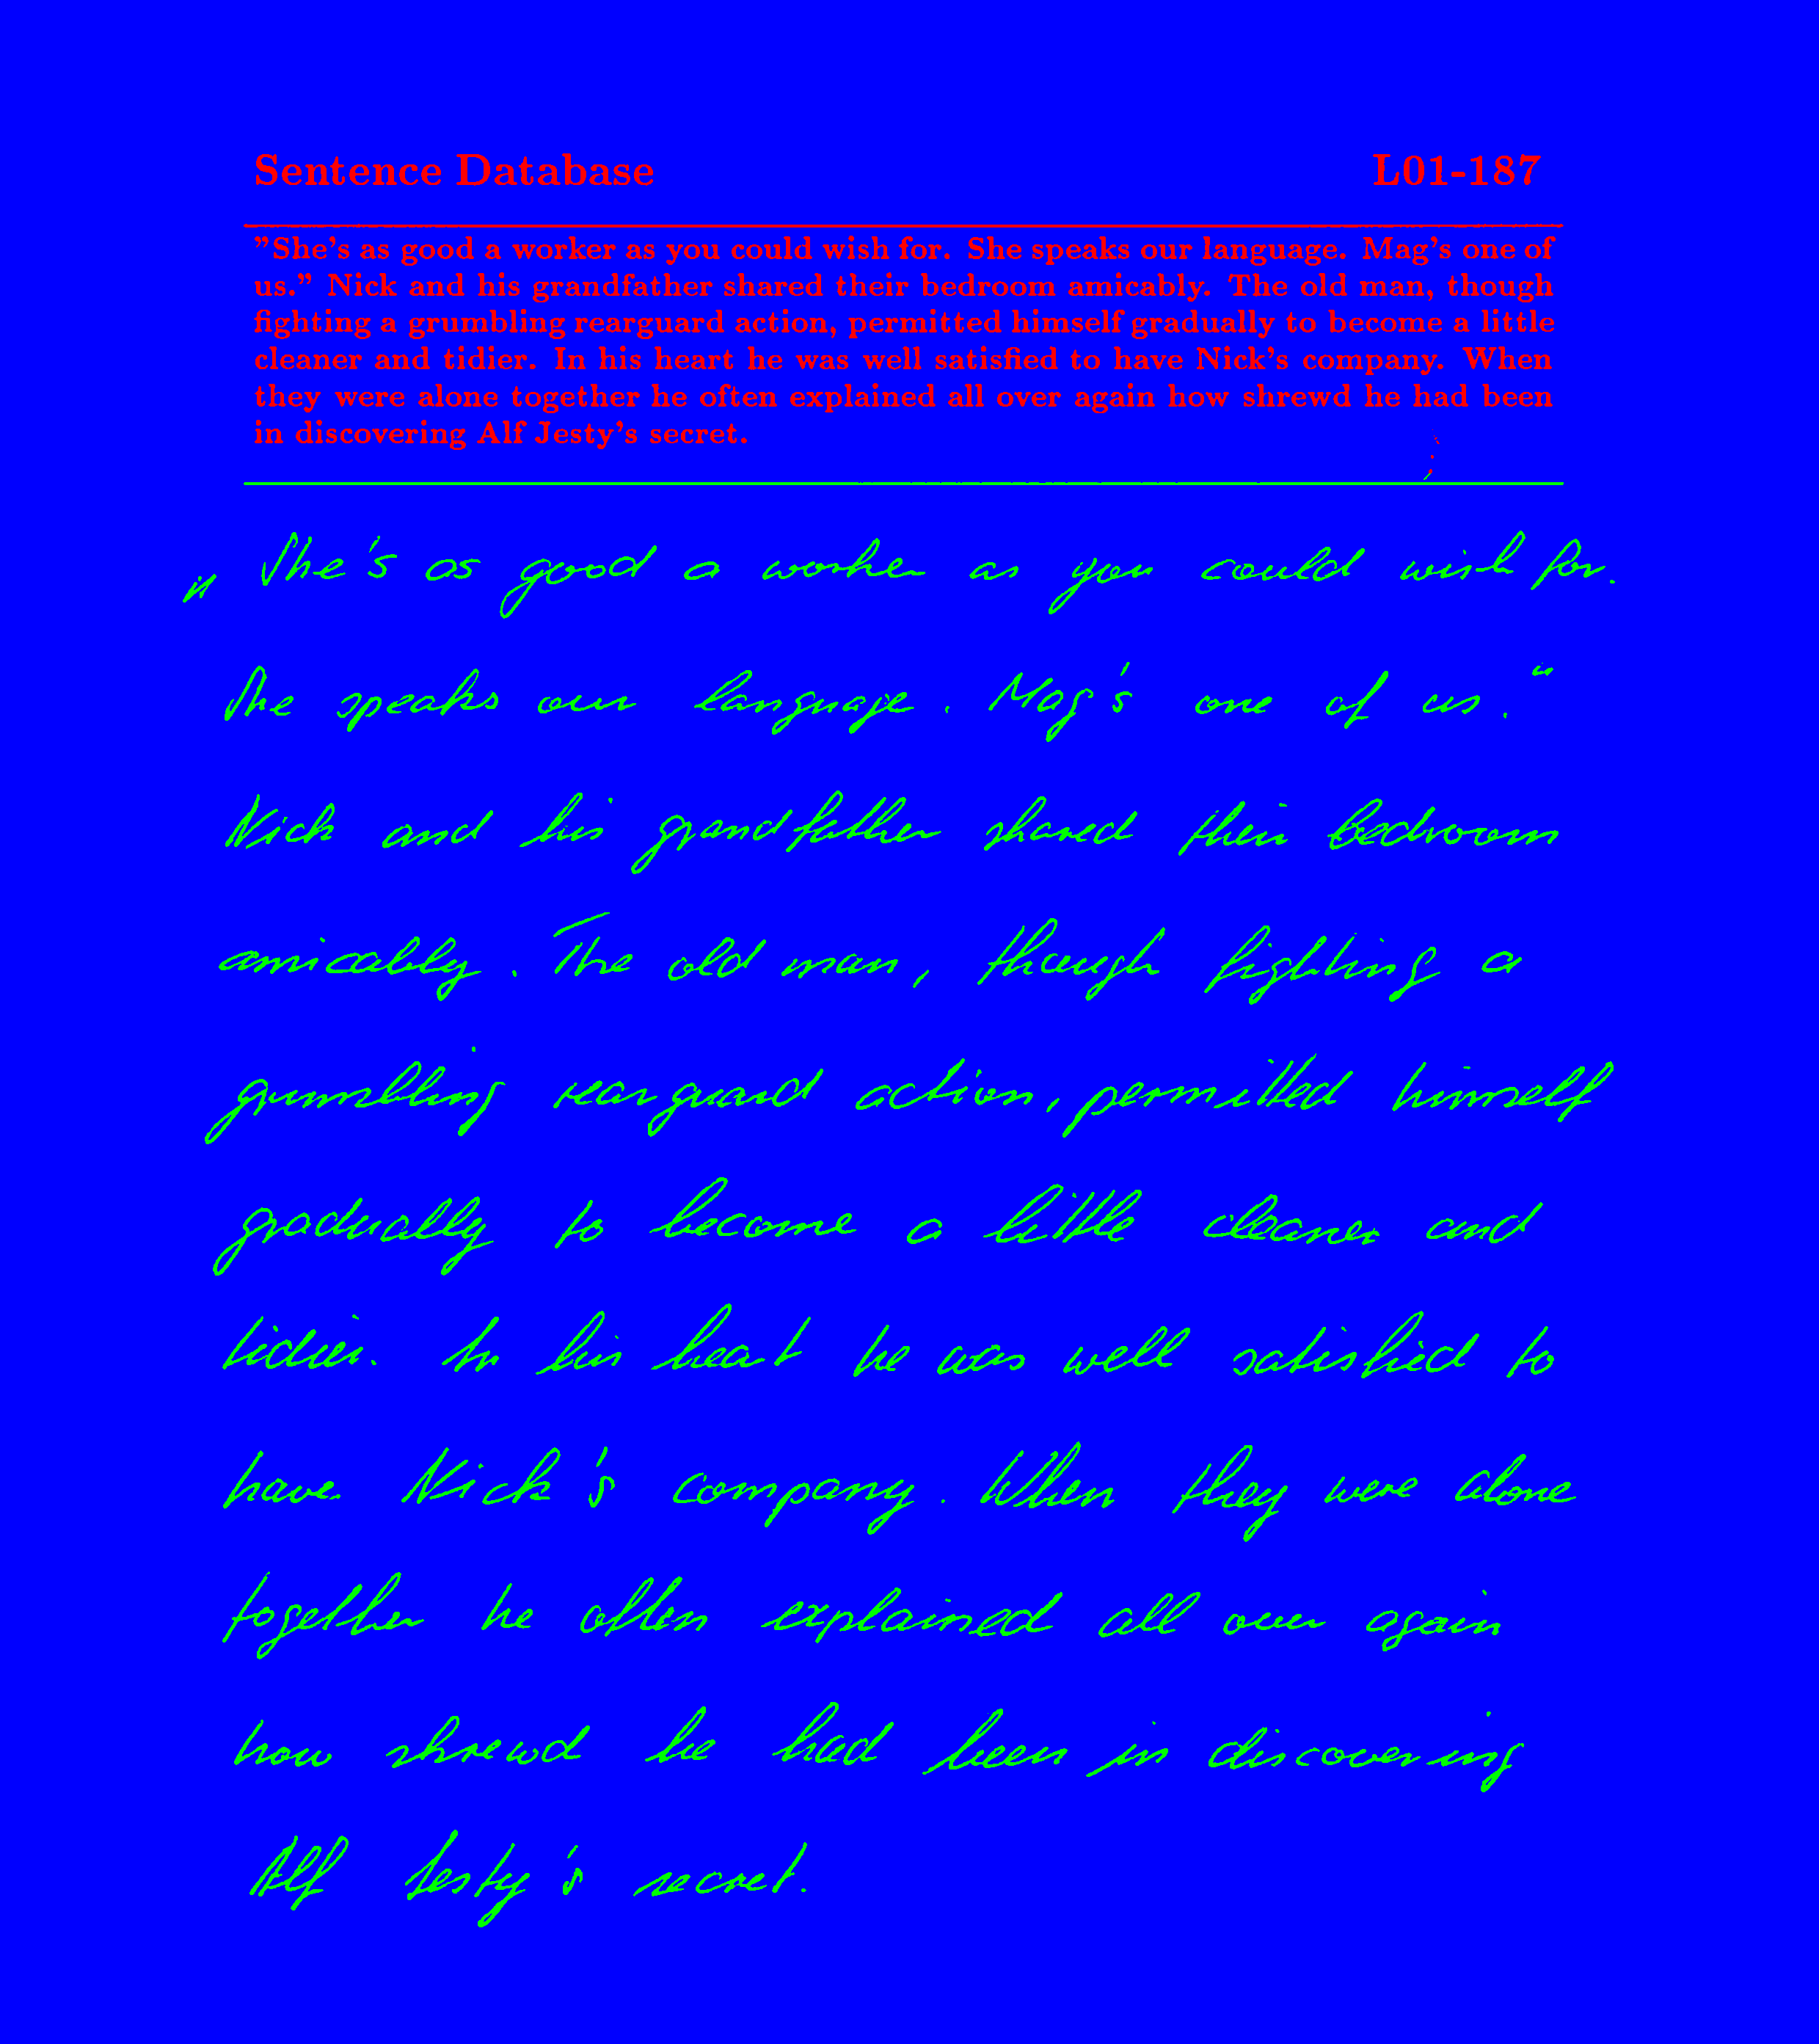 Sentence Database L01-187
"She's as good a worker as you could wish for. She speaks our language. Mag's one of
us." Nick and his grandfather shared their bedroom amicably. The old man, though
fighting a grumbling rearguard action, permitted himself gradually to become a little
cleaner and tidier. In his heart he was well satisfied to have Nick's company. When
they were alone together he often explained all over again how shrewd he had been
in discovering Alf Jesty's secret.
"She's as good a worker as you could wish for.
She speaks our language. Mag's one of us."
Nick and his grandfather shared their bedroom
amicably. The old man, though fighting a
grumbling rearguard action, permitted himself
gradually to become a little cleaner and
tidier. In his heart he was well satisfied to
have Nick's company. When they were alone
together he often explained all over again
how shrewd he had been in discovering
Alf Jesty's secret.